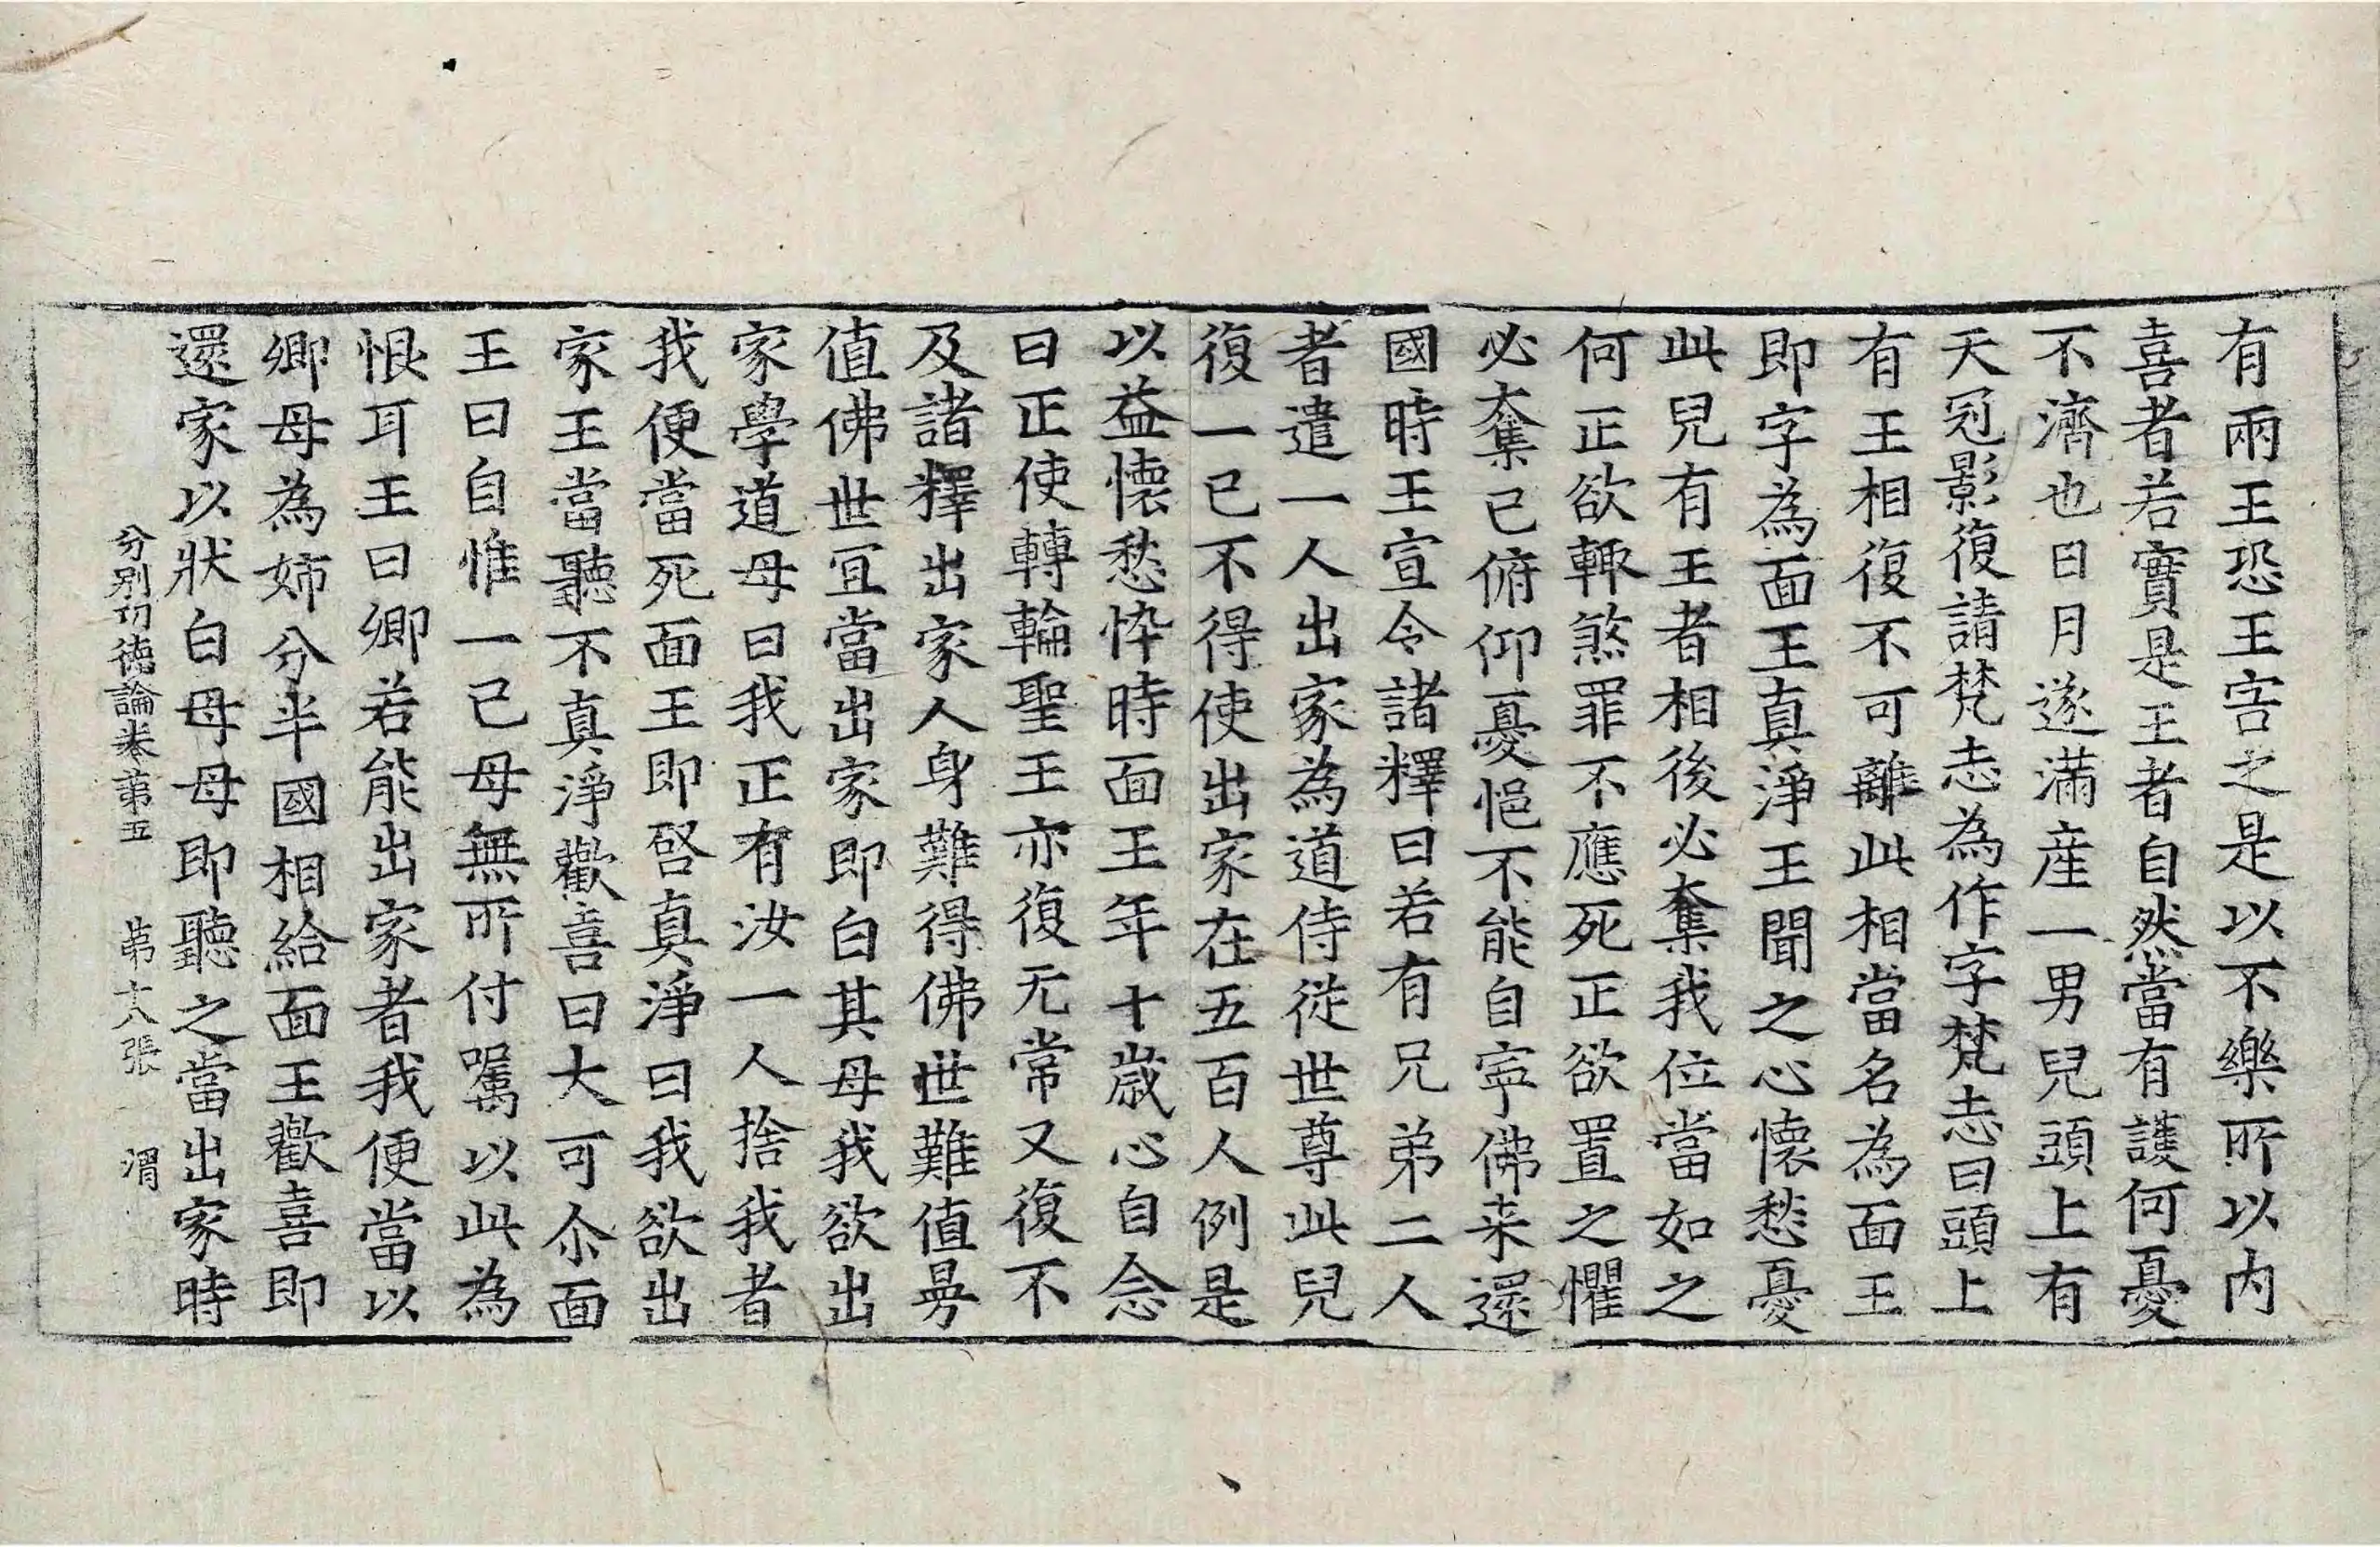 有兩王恐王害之是以不樂所以內
喜者若實是王者自然當有護何憂
不濟也日月遂滿産一男兒頭上有
天冠影復請梵志為作字梵志曰頭上
有王相復不可離此相當名為面王
即字為面王真淨王聞之心懷愁憂
此兒有王者相後必奪我位當如之
何正欲輙煞罪不應死正欲置之懼
必奪己俯仰憂悒不能自寧佛来還
國時王宣令諸釋曰若有兄弟二人
者遣一人出家為道侍從世尊此兒
復一已不得使出家在五百人例是
以益懷愁忰時面王年十歲心自念
曰正使轉輪聖王亦復无常又復不
及諸釋出家人身難得佛世難值㝵
值佛世冝當出家即白其母我欲出
家學道母曰我正有汝一人捨我者
我便當死面王即啓真淨曰我欲出
家王當聽不真淨歡喜曰大可尒面
王曰自惟一己母無所付囑以此為
恨耳王曰卿若能出家者我便當以
卿母為姉分半國相給面王歡喜即
還家以狀白母母即聽之當出家時
分別功德論卷第五 第十八張 渭